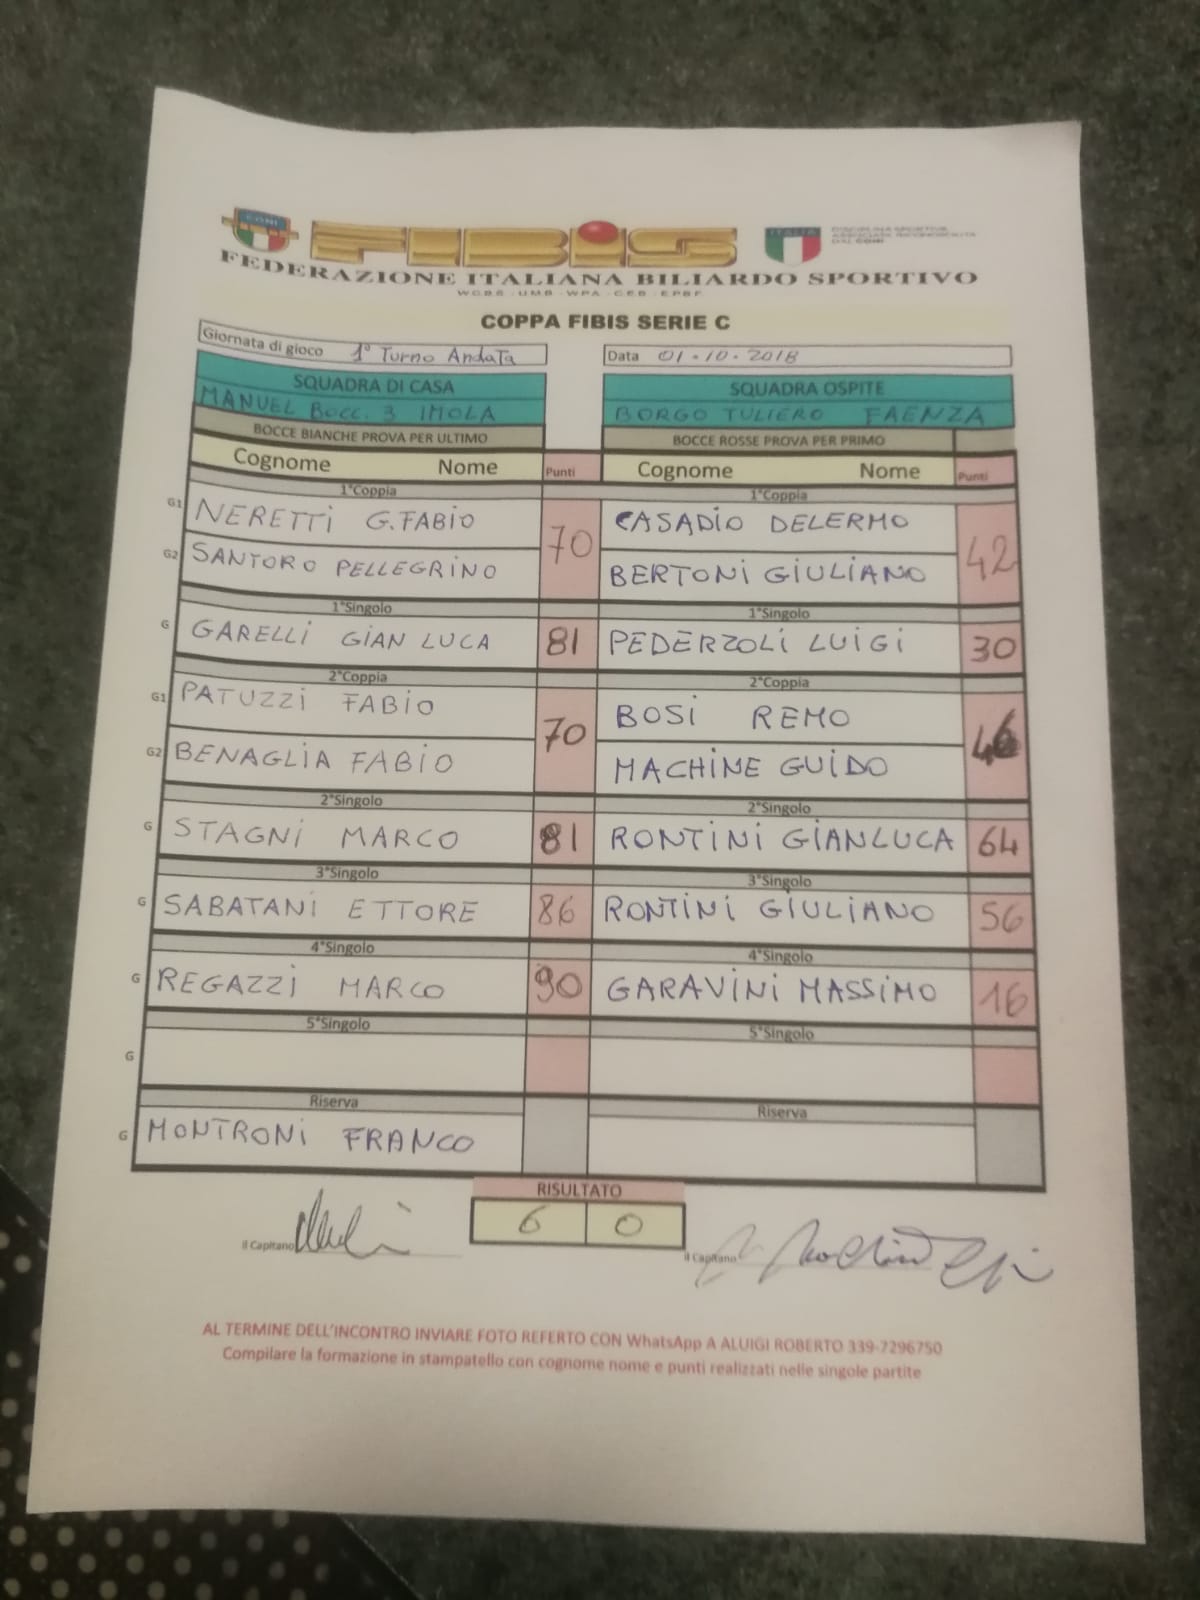 CONI
FIBIS
ITALIA
FEDERAZIONE ITALIANA BILIARDO SPORTIVO
W.C.B.S - U.M.B - W.P.A - C.E.B - E.P.B.F
COPPA FIBIS SERIE C
Giornata di gioco 1° Turno Andata
Data 01-10-2018
SQUADRA DI CASA SQUADRA OSPITE
MANUEL Bocc. 3 IMOLA BORGO TULIERO FAENZA
BOCCE BIANCHE PROVA PER ULTIMO BOCCE ROSSE PROVA PER PRIMO
Cognome Nome Punti Cognome Nome Punti
1°Coppia 1°Coppia
G1 NERETTI G.FABIO 70 CASADIO DELERMO 42
G2 SANTORO PELLEGRINO BERTONI GIULIANO
1°Singolo 1°Singolo
G GARELLI GIAN LUCA 81 PEDERZOLI LUIGI 30
2°Coppia 2°Coppia
G1 PATUZZI FABIO 70 BOSI REMO 46
G2 BENAGLIA FABIO MACHINE GUIDO
2°Singolo 2°Singolo
G STAGNI MARCO 81 RONTINI GIANLUCA 64
3°Singolo 3°Singolo
G SABATANI ETTORE 86 RONTINI GIULIANO 56
4°Singolo 4°Singolo
G REGAZZI MARCO 90 GARAVINI MASSIMO 16
5°Singolo 5°Singolo
G
Riserva Riserva
G MONTRONI FRANCO
RISULTATO
6 0
il Capitano il Capitano
AL TERMINE DELL'INCONTRO INVIARE FOTO REFERTO CON WhatsApp A ALUIGI ROBERTO 339-7296750
Compilare la formazione in stampatello con cognome nome e punti realizzati nelle singole partite